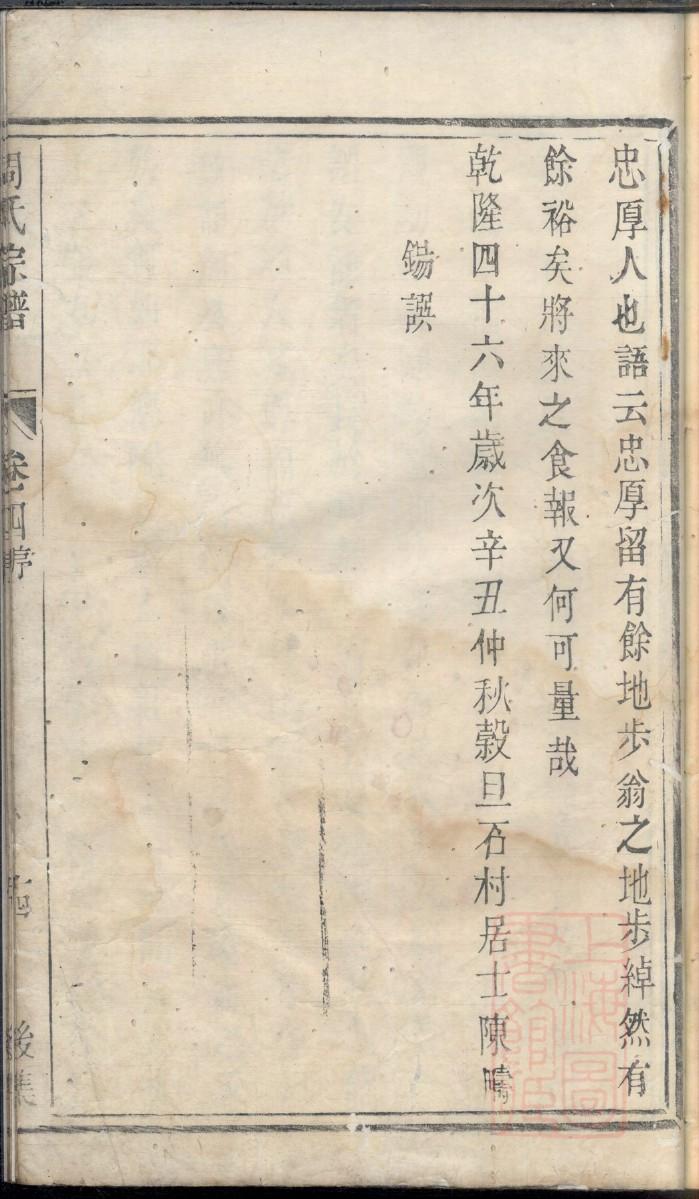 忠厚人也語云忠厚留有餘地步翁之地步綽然有
餘裕矣將來之食報又何可量哉
乾隆四十六年歲次辛丑仲秋穀旦石村居士陳疇
錫譔
周氏宗譜
卷四序
十四
後集
上海圖書館藏